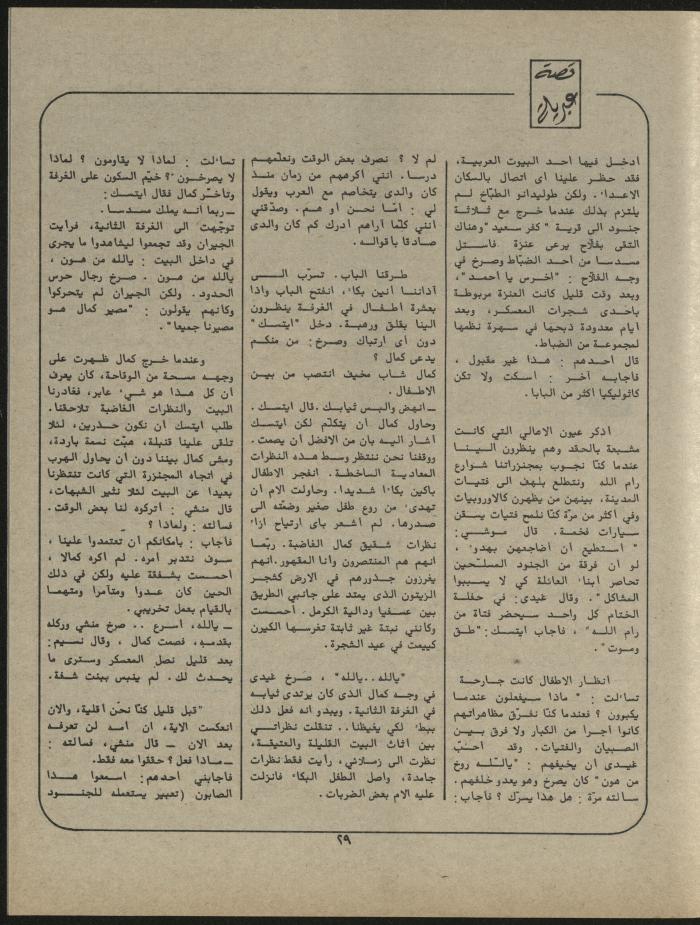 قصة
عبرية
ادخل فيها احد البيوت العربية،
فقد حظر علينا اى اتصال بالسكان
الاعداء. ولكن طوليدانو الطبّاخ لم
يلتزم بذلك عندما خرج مع ثلاثة
جنود الى قرية "كفر سعيد"وهناك
التقى بفلّاح يرعى عنزة فاستل
مسدسا من أحد الضبّاط وصرخ في
وجه الفلّاح : "اخرس يا أحمد"،
وبعد وقت قليل كانت العنزة مربوطة
باحدى شجرات المعسكر، وبعد
أيام معدودة ذبحها في سهرة نظمها
لمجموعة من الضباط.
قال احدهم : هذا غير مقبول ،
فأجابه آخر : اسكت ولا تكن
كاثوليكيا أكثر من البابا.
اذكر عيون الاهالي التي كانت
مشبعة بالحقد وهم ينظرون الينا
عندما كنّا نجوب بمجنزراتنا شوارع
رام الله ونتطلع بلهف الى فتيات
المدينة، بينهن من يظهرن كالاوروبيات
وفي أكثر من مرّة كنّا نلمح فتيات يسقن
سيارات فخمة. قال موشي:
" استطيع أن أضاجعهن بهدوء ،
لو أن فرقة من الجنود المسلّحين
تحاصر ابناء العائلة كي لا يسببوا
المشاكل". وقال غيدى: في حفلة
الختام كل واحد سيحضر فتاة من
رام الله" ، فأجاب ايتسك: "طق
وموت".
انظار الاطفال كانت جارحة
تساءلت : " ماذا سيفعلون عندما
يكبرون ؟ فعندما كنّا نفرّق مظاهراتهم
كانوا أجرأ من الكبار ولا فرق بين
الصبيان والفتيات. وقد احبّ
غيدى أن يخيفهم : "ياللّه روح
من هون" كان يصرخ وهو يعدو خلفهم.
سألته مرّة : هل هذا يسرّك ؟ فأجاب:
لم لا ؟ نصرف بعض الوقت ونعلّمهم
درسا. انني اكرههم من زمان منذ
كان والدى يتخاصم مع العرب ويقول
لي : أمّا نحن أو هم. وصدّقني
أنني كلّما أراهم أدرك كم كان والدى
صادقا بأقواله.
طرقنا الباب. تسرّب الى
آذاننا أنين بكاء، انفتح الباب واذا
بعشرة أطفال في الغرفة ينظرون
الينا بقلق ورهبة. دخل "ايتسك"
دون أى ارتباك وصرخ: من منكم
يدعى كمال ؟
كمال شاب مخيف انتصب من بين
الاطفال.
ـ انهض والبس ثيابك. قال ايتسك.
وحاول كمال أن يتكلّم لكن ايتسك
أشار اليه بان من الافضل أن يصمت.
ووقفنا نحن ننتظر وسط هذه النظرات
المعادية الساخطة. انفجر الاطفال
باكين بكاءا شديدا. وحاولت الام أن
تهدىء من روع طفل صغير وضمّته الى
صدرها. لم أشعر باى ارتياح ازاء
نظرات شقيق كمال الغاضبة. ربّما
انهم هم المنتصرون وأنا المقهور.انهم
يغرزون جذورهم في الارض كشجر
الزيتون الذى يمتد على جانبي الطريق
بين عسفيا ودالية الكرمل. أحسست
وكأنني نبتة غير ثابتة تغرسها الكيرن
كييمت في عيد الشجرة.
"يالله..يالله" ، صرخ غيدى
في وجه كمال الذى كان يرتدى ثيابه
في الغرفة الثانية. ويبدو انه فعل ذلك
ببطء لكي يغيظنا.. تنقلت نظراتي
بين أثاث البيت القليلة والعتيقة،
نظرت الى زملائي، رأيت فقط نظرات
جامدة، واصل الطفل البكاء فانزلت
عليه الام بعض الضربات.
تساءلت : لماذا لا يقاومون ؟ لماذا
لا يصرخون"؟ خيّم السكون على الغرفة
وتأخّر كمال فقال ايتسك:
ـ ربما أنه يملك مسدسا.
توجّهت الى الغرفة الثانية، فرأيت
الجيران وقد تجمعوا ليشاهدوا ما يجرى
في داخل البيت : يالله من هون ،
يالله من هون . صرخ رجال حرس
الحدود. ولكن الجيران لم يتحركوا
وكأنهم يقولون : "مصير كمال هو
مصيرنا جميعا".
وعندما خرج كمال ظهرت على
وجهه مسحة من الوقاحة، كان يعرف
أن كل هذا هو شيء عابر، فغادرنا
البيت والنظرات الغاضبة تلاحقنا.
طلب ايتسك أن نكون حذرين، لئلا
تلقى علينا قنبلة، هبّت نسمة باردة،
ومشى كمال بيننا دون أن يحاول الهرب
في اتجاه المجنزرة التي كانت تنتظرنا
بعيدا عن البيت لئلا نثير الشبهات،
قال منشي : اتركوه لنا بعض الوقت.
فسألته : ولماذا ؟
فأجاب : بامكانكم أن تعتمدوا علينا ،
سوف نتدبر أمره. لم اكره كمالا ،
أحسست بشفقة عليه ولكن في ذلك
الحين كان عدوا ومتآمرا ومتهما
بالقيام بعمل تخريبي.
ـ يالله، اسرع .. صرخ منشي وركله
بقدمه، فصمت كمال ، وقال نسيم:
بعد قليل نصل المعسكر وسترى ما
يحدث لك. لم ينبس ببنت شفة.
"قبل قليل كنّا نحن أقلية، والان
انعكست الاية، ان امه لن تعرفه
بعد الان ـ قال منشي، فسألته :
ـ ماذا فعل؟ حققوا معه فقط.
فأجابني أحدهم: اسمعوا هذا
الصابون (تعبير يستعمله للجنود
٢٩